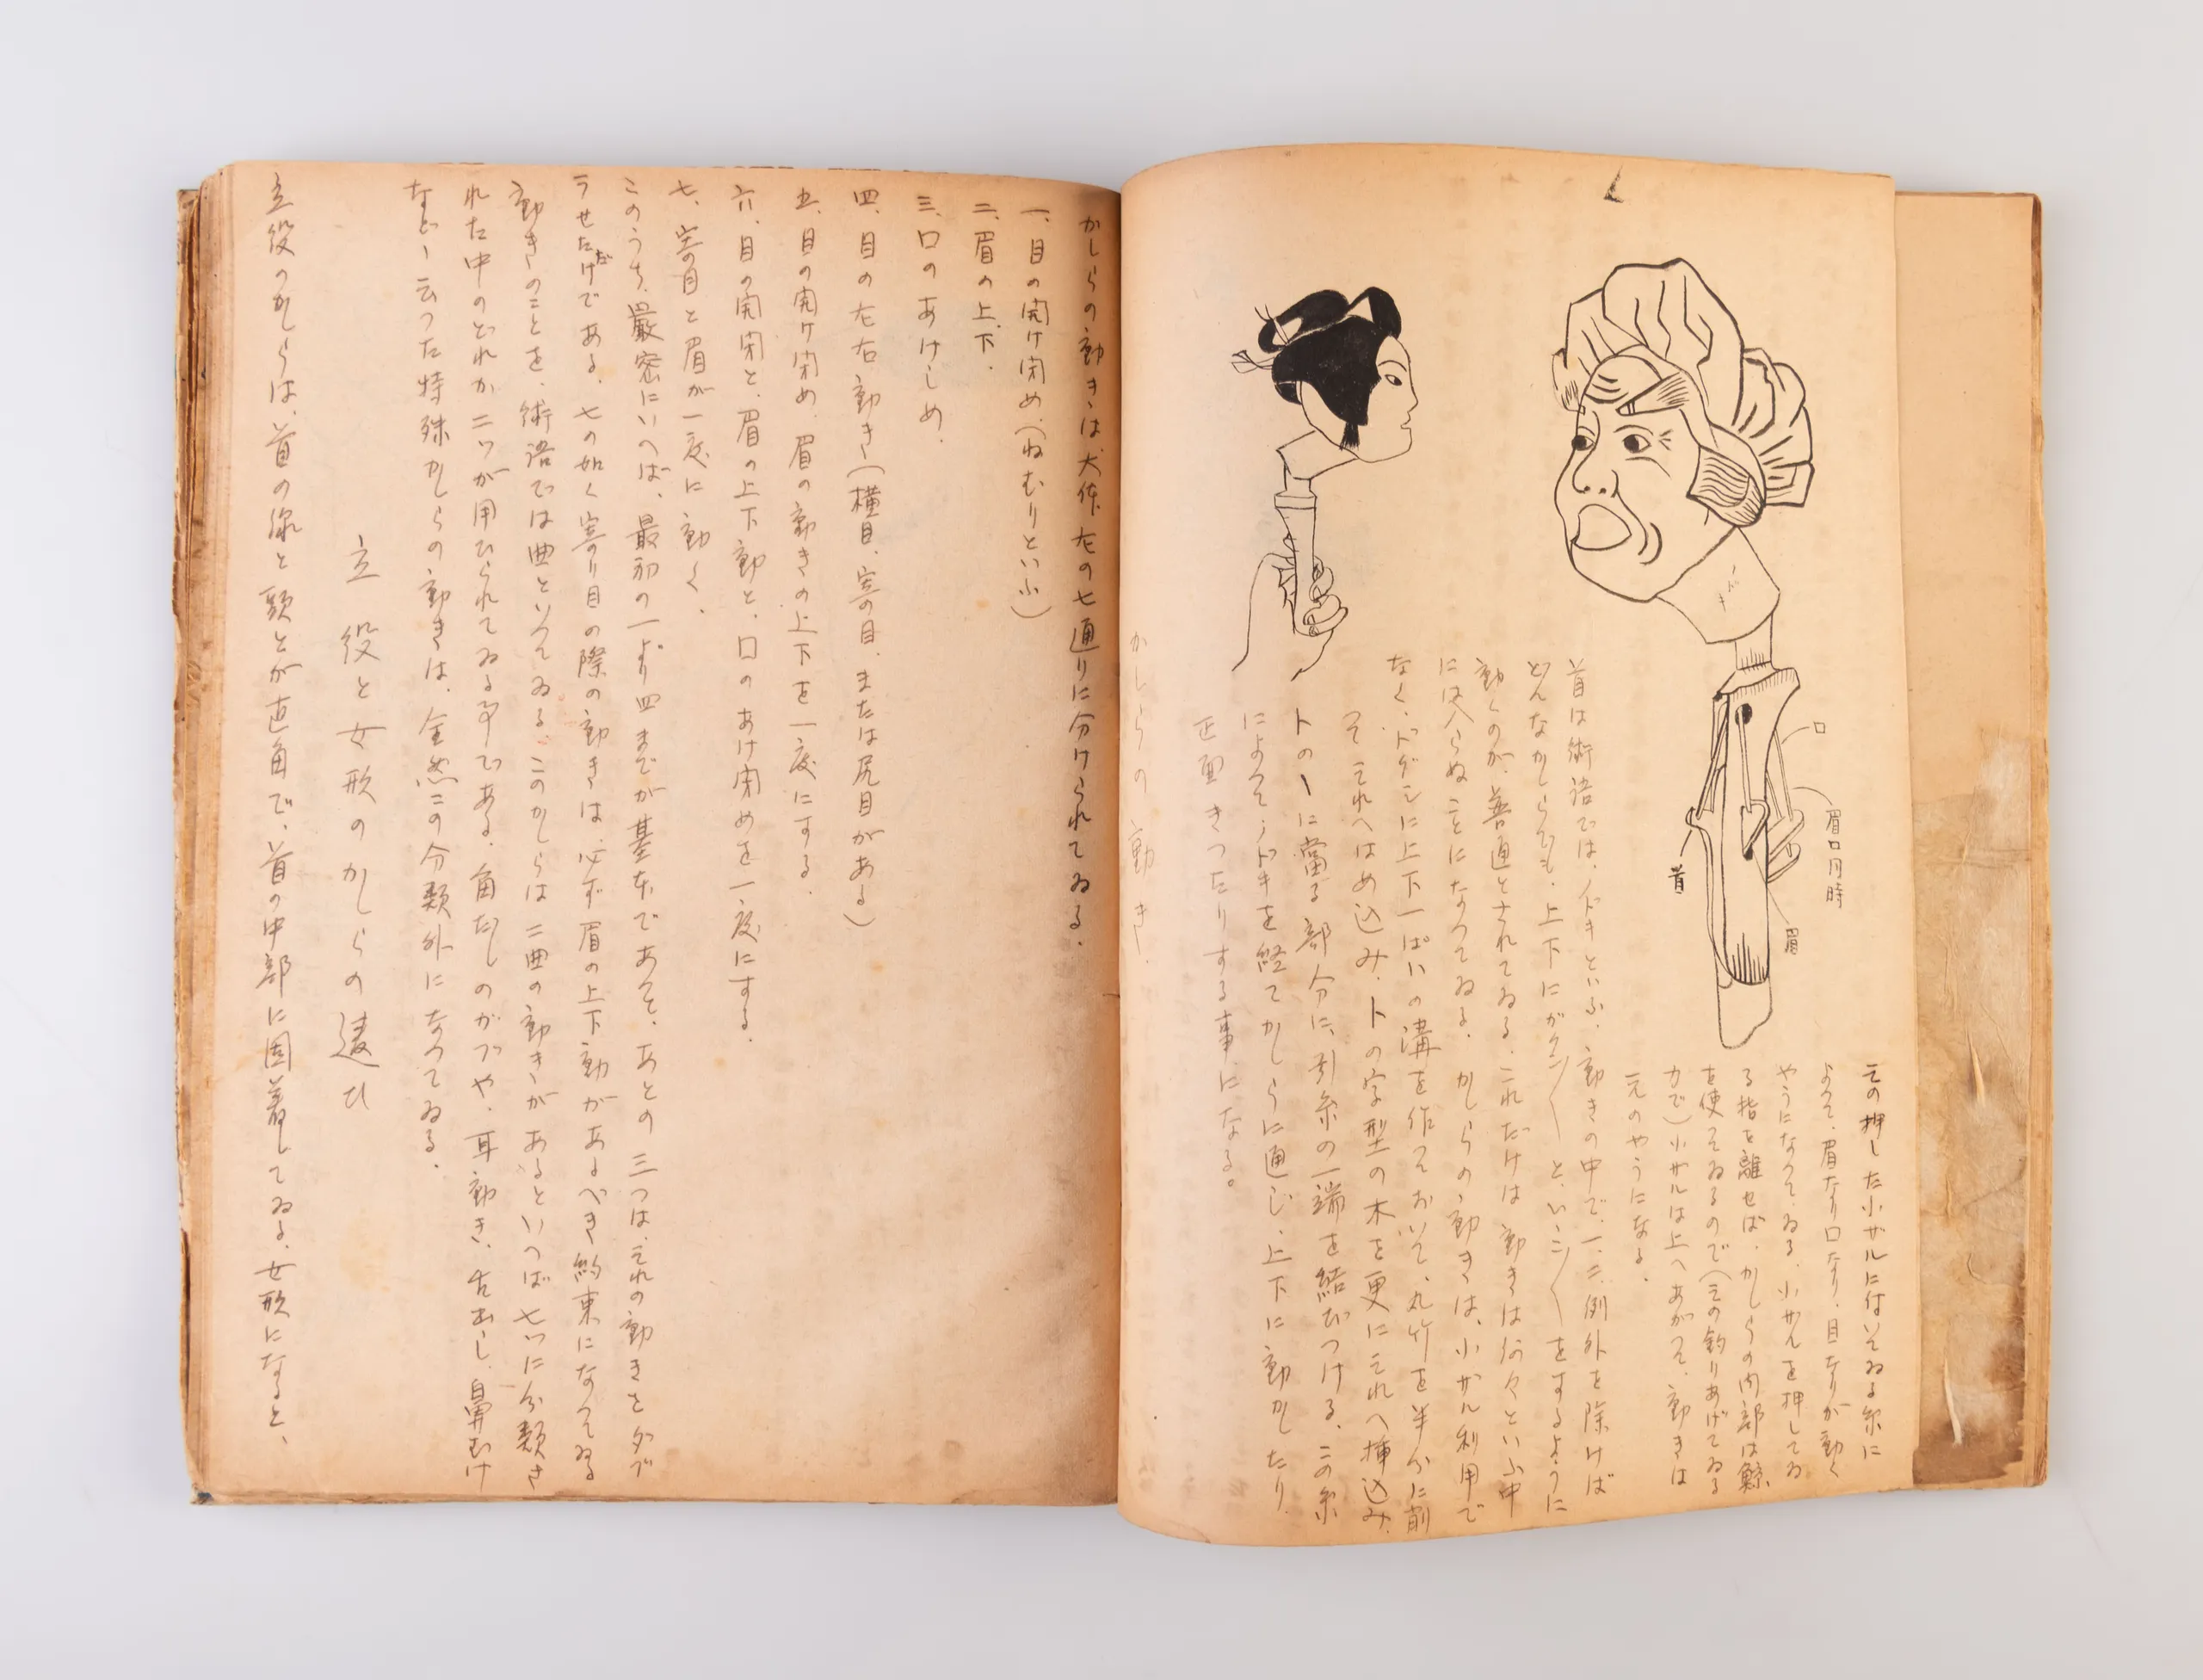 その押した小ザルに付いてゐる糸に
よつて、眉なり口なり、目なりが動く
やうになつてゐる。小ザルを押してゐ
る指を離せば、かしらの内部は鯨
を使つてゐるので(その釣りあげてゐる
力で)小ザルは上へあがつて、動きは
元のやうになる。
口
眉口同時
眉
首
ノドキ
首は術語では、ノドキといふ。動きの中で、一、二、例外を除けば
どんなかしらでも、上下にがくん〱と、いこ〱をするように
動くのが、普通とされてゐる。これだけは動きは何々といふ中
には入らぬことになつてゐる。かしらの動きは、小ザル利用で
なく、ドグシに上下一ぱいの溝を作つておいて、丸竹を半分に削
つてそれへはめ込み、トの字型の木を更にそれへ挿込み、
トのヽに當る部分に、引糸の一端を結びつける。この糸
によつて、ノドキを経てかしらに通じ、上下に動かしたり
正面きつたりする事になる。
かしらの動き
かしらの動きは大体左の七通りに分けられてゐる。
一、目の開け閉め、(ねむりといふ)
二、眉の上、下、
三、口のあけしめ、
四、目の左右動き(横目、寄の目、または尻目がある)
五、目の開け閉め、眉の動きの上下を一度にする。
六、目の開閉と、眉の上下動と、口のあけ閉めを一度にする。
七、寄の目と眉が一度に動く、
このうち、厳密にいへば、最初の一より四までが基本であつて、あとの三つは、それの動きをダブ
らせただけである。七の如く寄り目の際の動きは、必ず眉の上下動があるべき約束になつてゐる
動きのことを、術語では曲といつてゐる。このかしらは二曲の動きがあるといへば七つに分類さ
れた中のどれか二ツが用ひられてゐる事である。角だしのガブや、耳動き、舌出し、鼻むけ
など云つた特殊かしらの動きは、全然この分類外になつてゐる。
立役と女形のかしらの違ひ
立役のかしらは、首の線と顎とが直角で、首の中部に固着してゐる、女形になると、